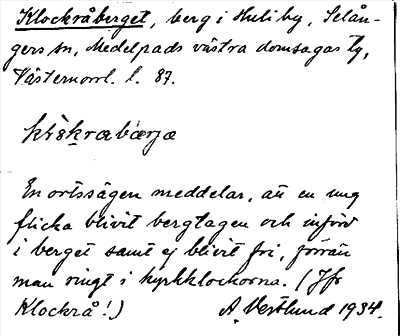 Klockråberget, berg i Huli by, Selån-
gers sn, Medelpads västra domsagas tg,
Västernorrl. l. 87.
klåkrabærja
En ortssägen meddelar, att en ung
flicka blivit bergtagen och införd
i berget samt ej blivit fri, förrän
man ringt i kyrkklockorna. (Jfr
Klockrå!) A. Vestlund 1934.